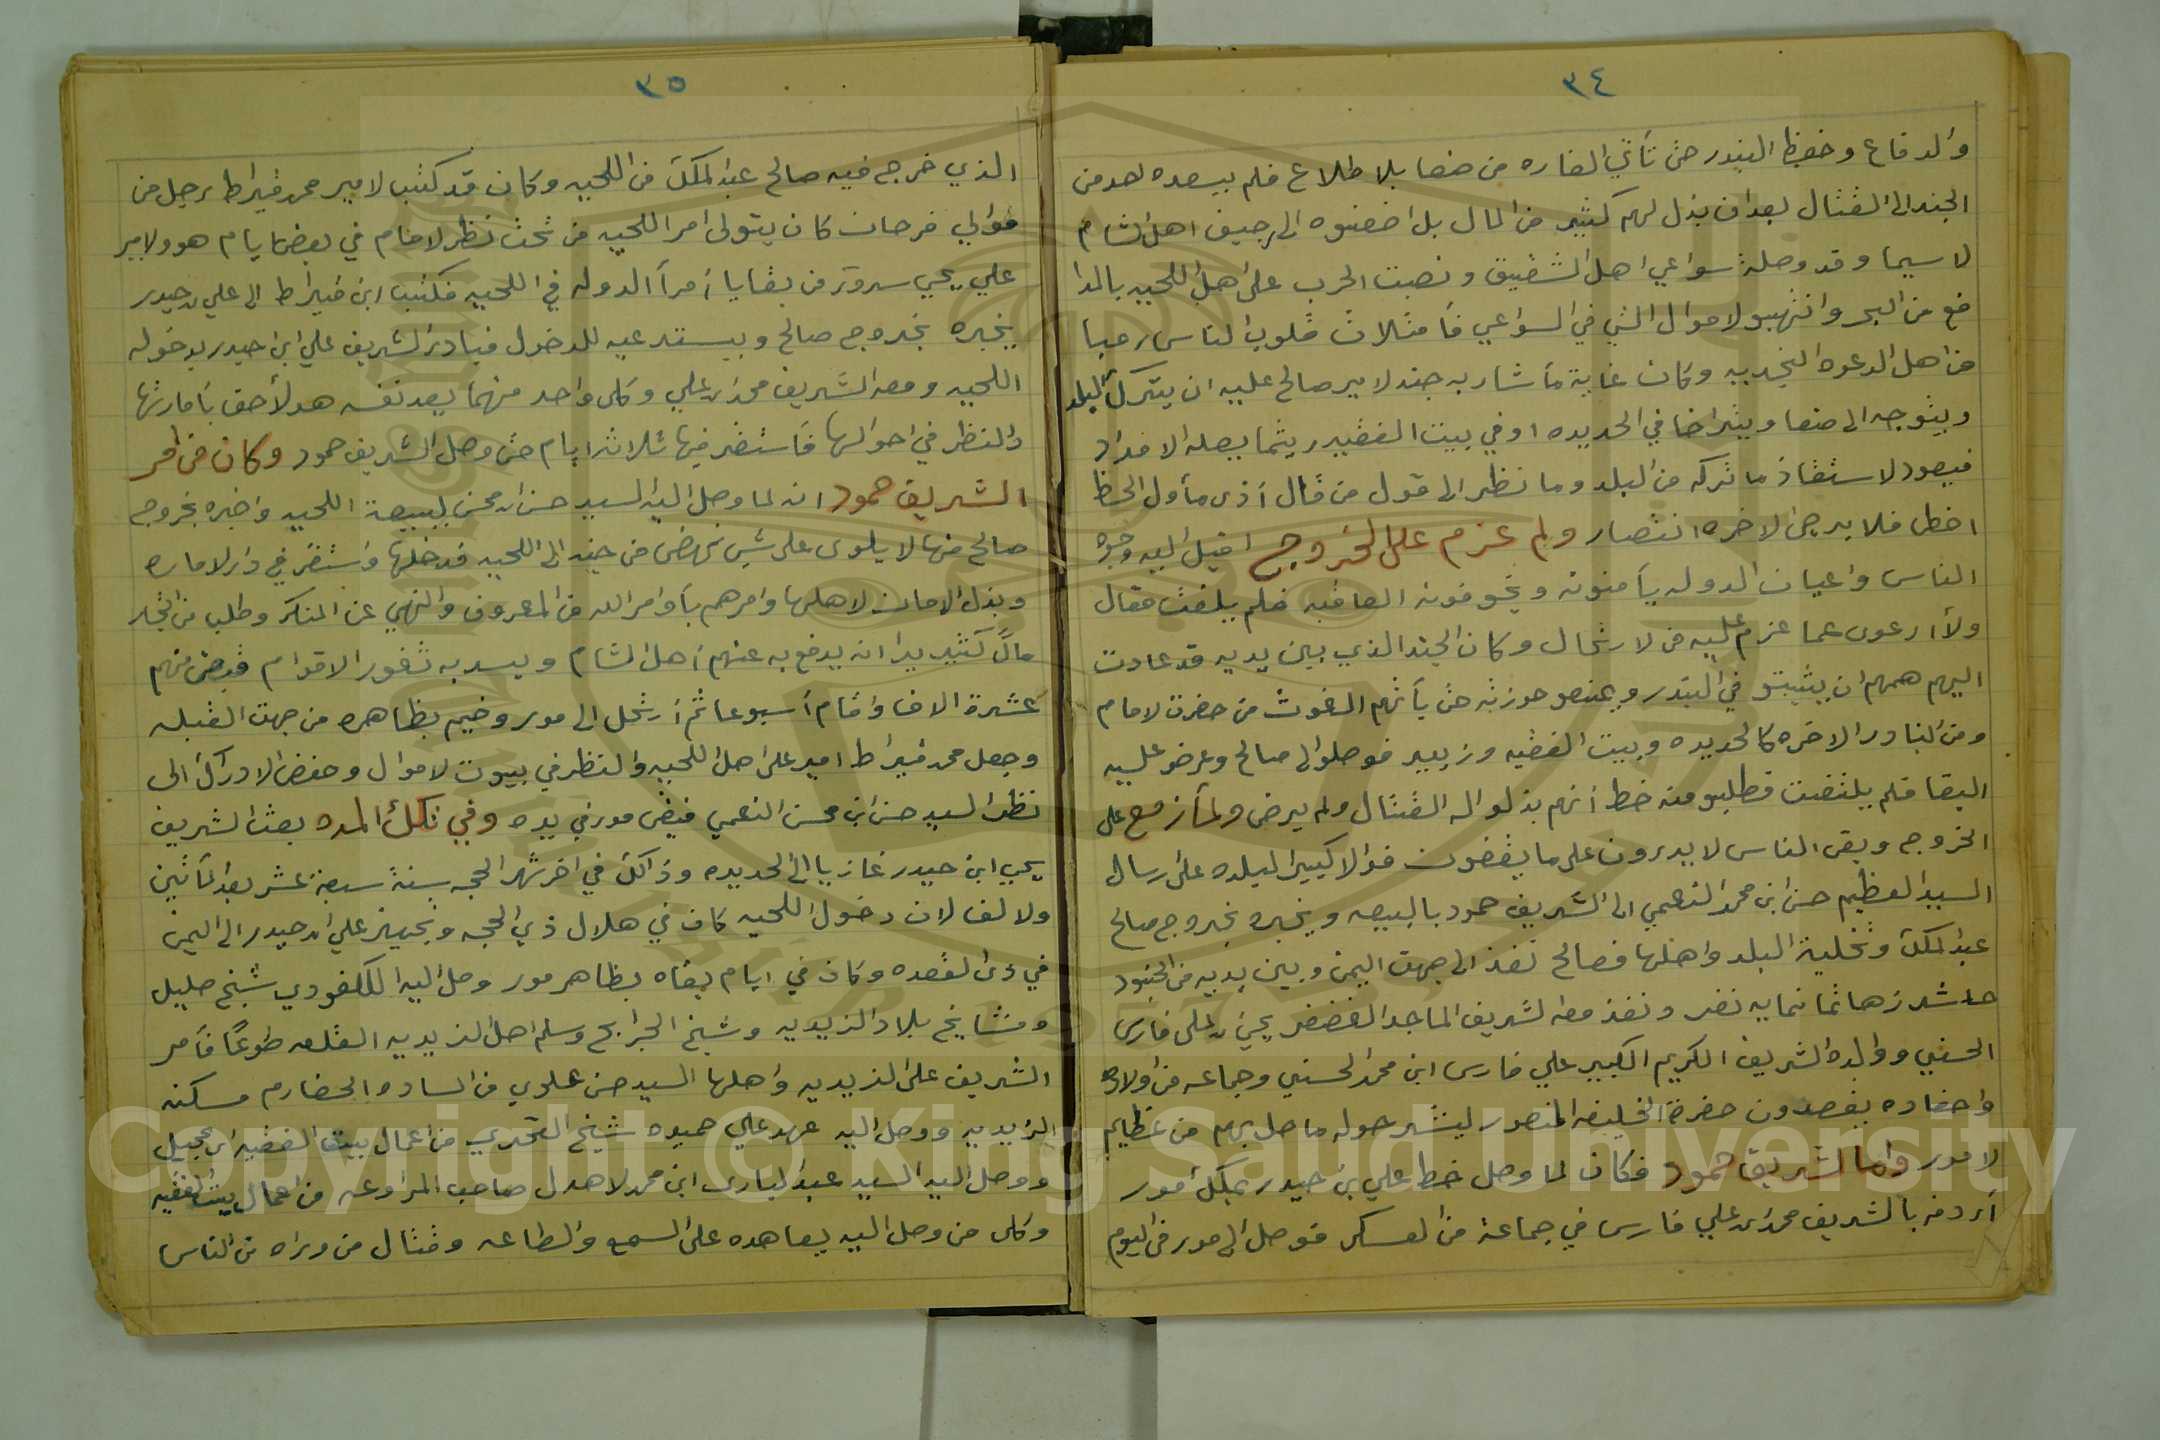 ٣٤
والدفاع وحفظ البندر حتى تأتي الغاره من صنعا بلا طلاع فلم يسعده احد من
الجند الى القتال بعد ان بذل لهم كثير من المال بل اضعفوه الى رجيف اهل الشام
لا سيما وقد وصلة سواعي اهل الشقيق ونصبت الحرب على اهل اللحيه بالمدا
فع من البحر وانتهبو لاموال التي في السواعي فأمتلات قلوب الناس رعبا
من اهل الدعوه النجديه وكان غاية مأشار به جند لامير صالح عليه ان يترك البلد
ويتوجه الى صنعا ويتراخا في الحديده او في بيت الفقيه ريثما يصله الامداد
فيعود لاستنقاذ ما تركه من البلد وما نظر الى قول من قال أذى مأول الحظ
اخطى فلا يرجى لاخره انتصار ولم عزم على الخروج اقبل اليه وجوه
الناس واعيان الدوله يأمنونه ويخوفونه العاقبه فلم يلفت مقال
ولأ أرعوى عما عزم عليه من لارتحال وكان الجند الذي بين يديه قد عادت
اليهم هممهم ان يثبتو في البندر ويمنعو حوزته حتى يأتهم الغوث من حضرت لامام
ومن البنادر الاخره كالحديده وبيت الفقيه وزبيد فوصلو الى صالح وعرضو عليه
البقا فلم يلتفت فطلبو منه خط أنهم بذلوا له القتال ولم يرض ولمأ زمع على
الخروج وبقى الناس لا يدرون على ما يقضون فوالا كبير البلده على رسال
السيد العظيم حسن ابن محمد النعمي الى الشريف حمود بالبيعه ويخبره بخروج صالح
عبد الملك وتخلية البلد واهلها فصالح نفذ الى جهت اليمن وبين يديه من الجنود
حاشد زها ثمانمايه نفر ونفذ معه لشريف الماجد الغضنفر يحيى بن علي فارس
الحسني ووالده الشريف الكريم الكبير علي فارس ابن محمد الحسني وجماعه من اولاده
واحفاده يقصدون حضرة الخليفه المنصور لينشر حوله ما حل بهم من عظايم
لامور واما لشريف حمود فكان لما وصل خط علي بن حيدر بملك أمور
أردفه بالشريف محمد بن علي فارس في جماعة من العسكر فوصل الى مور في اليوم
٣٥
الذي خرج فيه صالح عبد الملك من اللحيه وكان قد كتب لامير محمد قيراط رجل من
موالي فرحان كان يتولى امر اللحيه من تحت نظر لامام في بعض لايام هو ولامير
علي يحي سرور من بقايا أمرأ الدوله في اللحيه فكتب ابن قيراط الى علي بن حيدر
يخبره بخروج صالح ويستدعيه للدخول فبادر الشريف علي ابن حيدر بدخوله
اللحيه ومعه الشريف محمد بن علي وكل واحد منهما يعد نفسه هو لأحق بأمارتها
والنظر في احوالها فأستقر فيها ثلاثة ايام حتى وصل الشريف حمود وكان من أمر
الشريف حمود انه لما وصل اليه السيد حسن بن محسن ببيعة اللحيه واخبره بخروج
صالح منها لا يلوى على شي نهض من حينه الى اللحيه فدخلها واستقر في دار لاماره
وبذل الامان لاهلها وامرهم بأوامر الله من المعروف والنهي عن المنكر وطلب من التجار
مالاً كثير يرا انه يدفع به عنهم أهل الشام ويسد به ثغور الاقوام فقبض منهم
عشرة الاف واقام أسبوعا ثم أرتحل الى مور وخيم بظاهره من جهت القبله
وجعل محمد قيراط امير على اهل اللحيه والنظر في بيوت لاموال وحفض الادراك الى
نظر السيد حسن ابن محسن النعمي فبقى مور في يده وفي تلك المده بعث الشريف
يحي ابن حيدر غازيا الى الحديده وذالك في اخر شهر الحجه سنة سبعة عشر بعد المأتين
ولالف لان دخول اللحيه كان في هلال ذي الحجه وتجهيز علي بن حيدر الى اليمن
في ذى القعده وكان في ايام بقاه بظاهر مور وصل اليه الكلفودي شيخ صليل
ومشايخ بلاد الزيديه وشيخ الجرابح وسلم اهل الزيديه القلعه طوعًا فأمر
الشريف على الزيديه واهلها السيد حسن علوي من الساده الحضارم مسكنه
الزيديه ووصل اليه عهد علي حميده شيخ القحري من اعمال بيت الفقيه ابن عجيل
ووصل اليه السيد عبد الباري ابن محمد لاهدل صاحب المراوعه من اعمال بيت الفقيه
وكل من وصل اليه يعاهده على السمع والطاعه وقتال من وراه من الناس